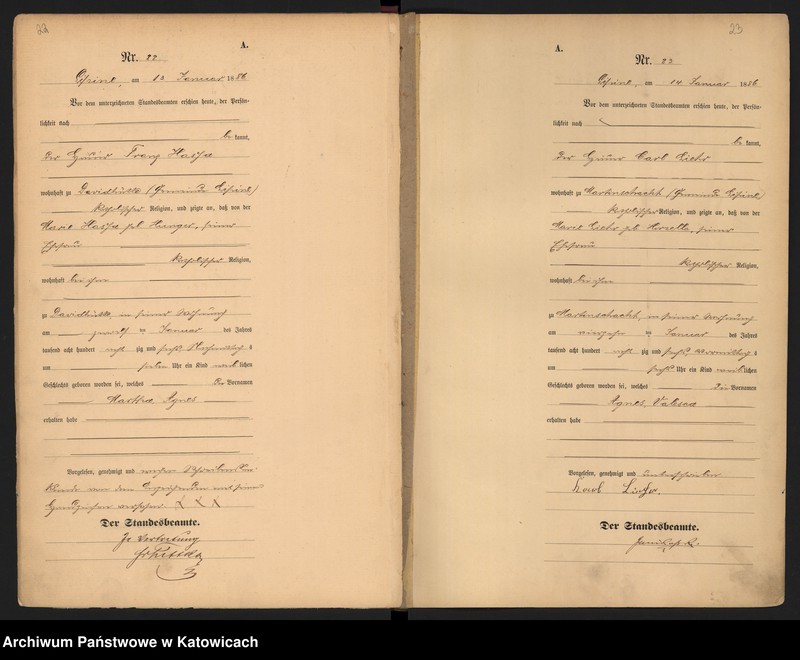 22
A.
Nr. 22
am 13 Januar 1886
Vor dem unterzeichneten Standesbeamten erschien heute, der Persön-
lichkeit nach
be kannt,
der Franz
wohnhaft zu Davidhütte (Gemeinde
katholischer Religion, und zeigte an, daß von der
Marie geb. seiner
Ehefrau
katholischer Religion,
wohnhaft bei ihm
zu Davidhütte, in seiner Wohnung
am zwölf ten Januar des Jahres
tausend acht hundert acht zig und sechs Nachmittags
um Uhr ein Kind weib lichen
Geschlechts geboren worden sei, welches die Vornamen
Martha Agnes
erhalten habe
Vorgelesen, genehmigt und wegen Schreibensun-
kunde von dem Anzeigenden mit seinem
Handzeichen versehen X X X
Der Standesbeamte.
In Vertretung
23
A.
Nr. 23
am 14 Januar 1886
Vor dem unterzeichneten Standesbeamten erschien heute, der Persön-
lichkeit nach
be kannt,
der Carl
wohnhaft zu Martinschacht (Gemeinde
katholischer Religion, und zeigte an, daß von der
Marie geb. seiner
Ehefrau
katholischer Religion,
wohnhaft bei ihm
zu Martinschacht, in seiner Wohnung
am vierzehn ten Januar des Jahres
tausend acht hundert acht zig und sechs Vormittags
um sechs Uhr ein Kind weib lichen
Geschlechts geboren worden sei, welches die Vornamen
Agnes, Valesca
erhalten habe
Vorgelesen, genehmigt und unterschrieben
Karl
Der Standesbeamte.
Archiwum Państwowe w Katowicach